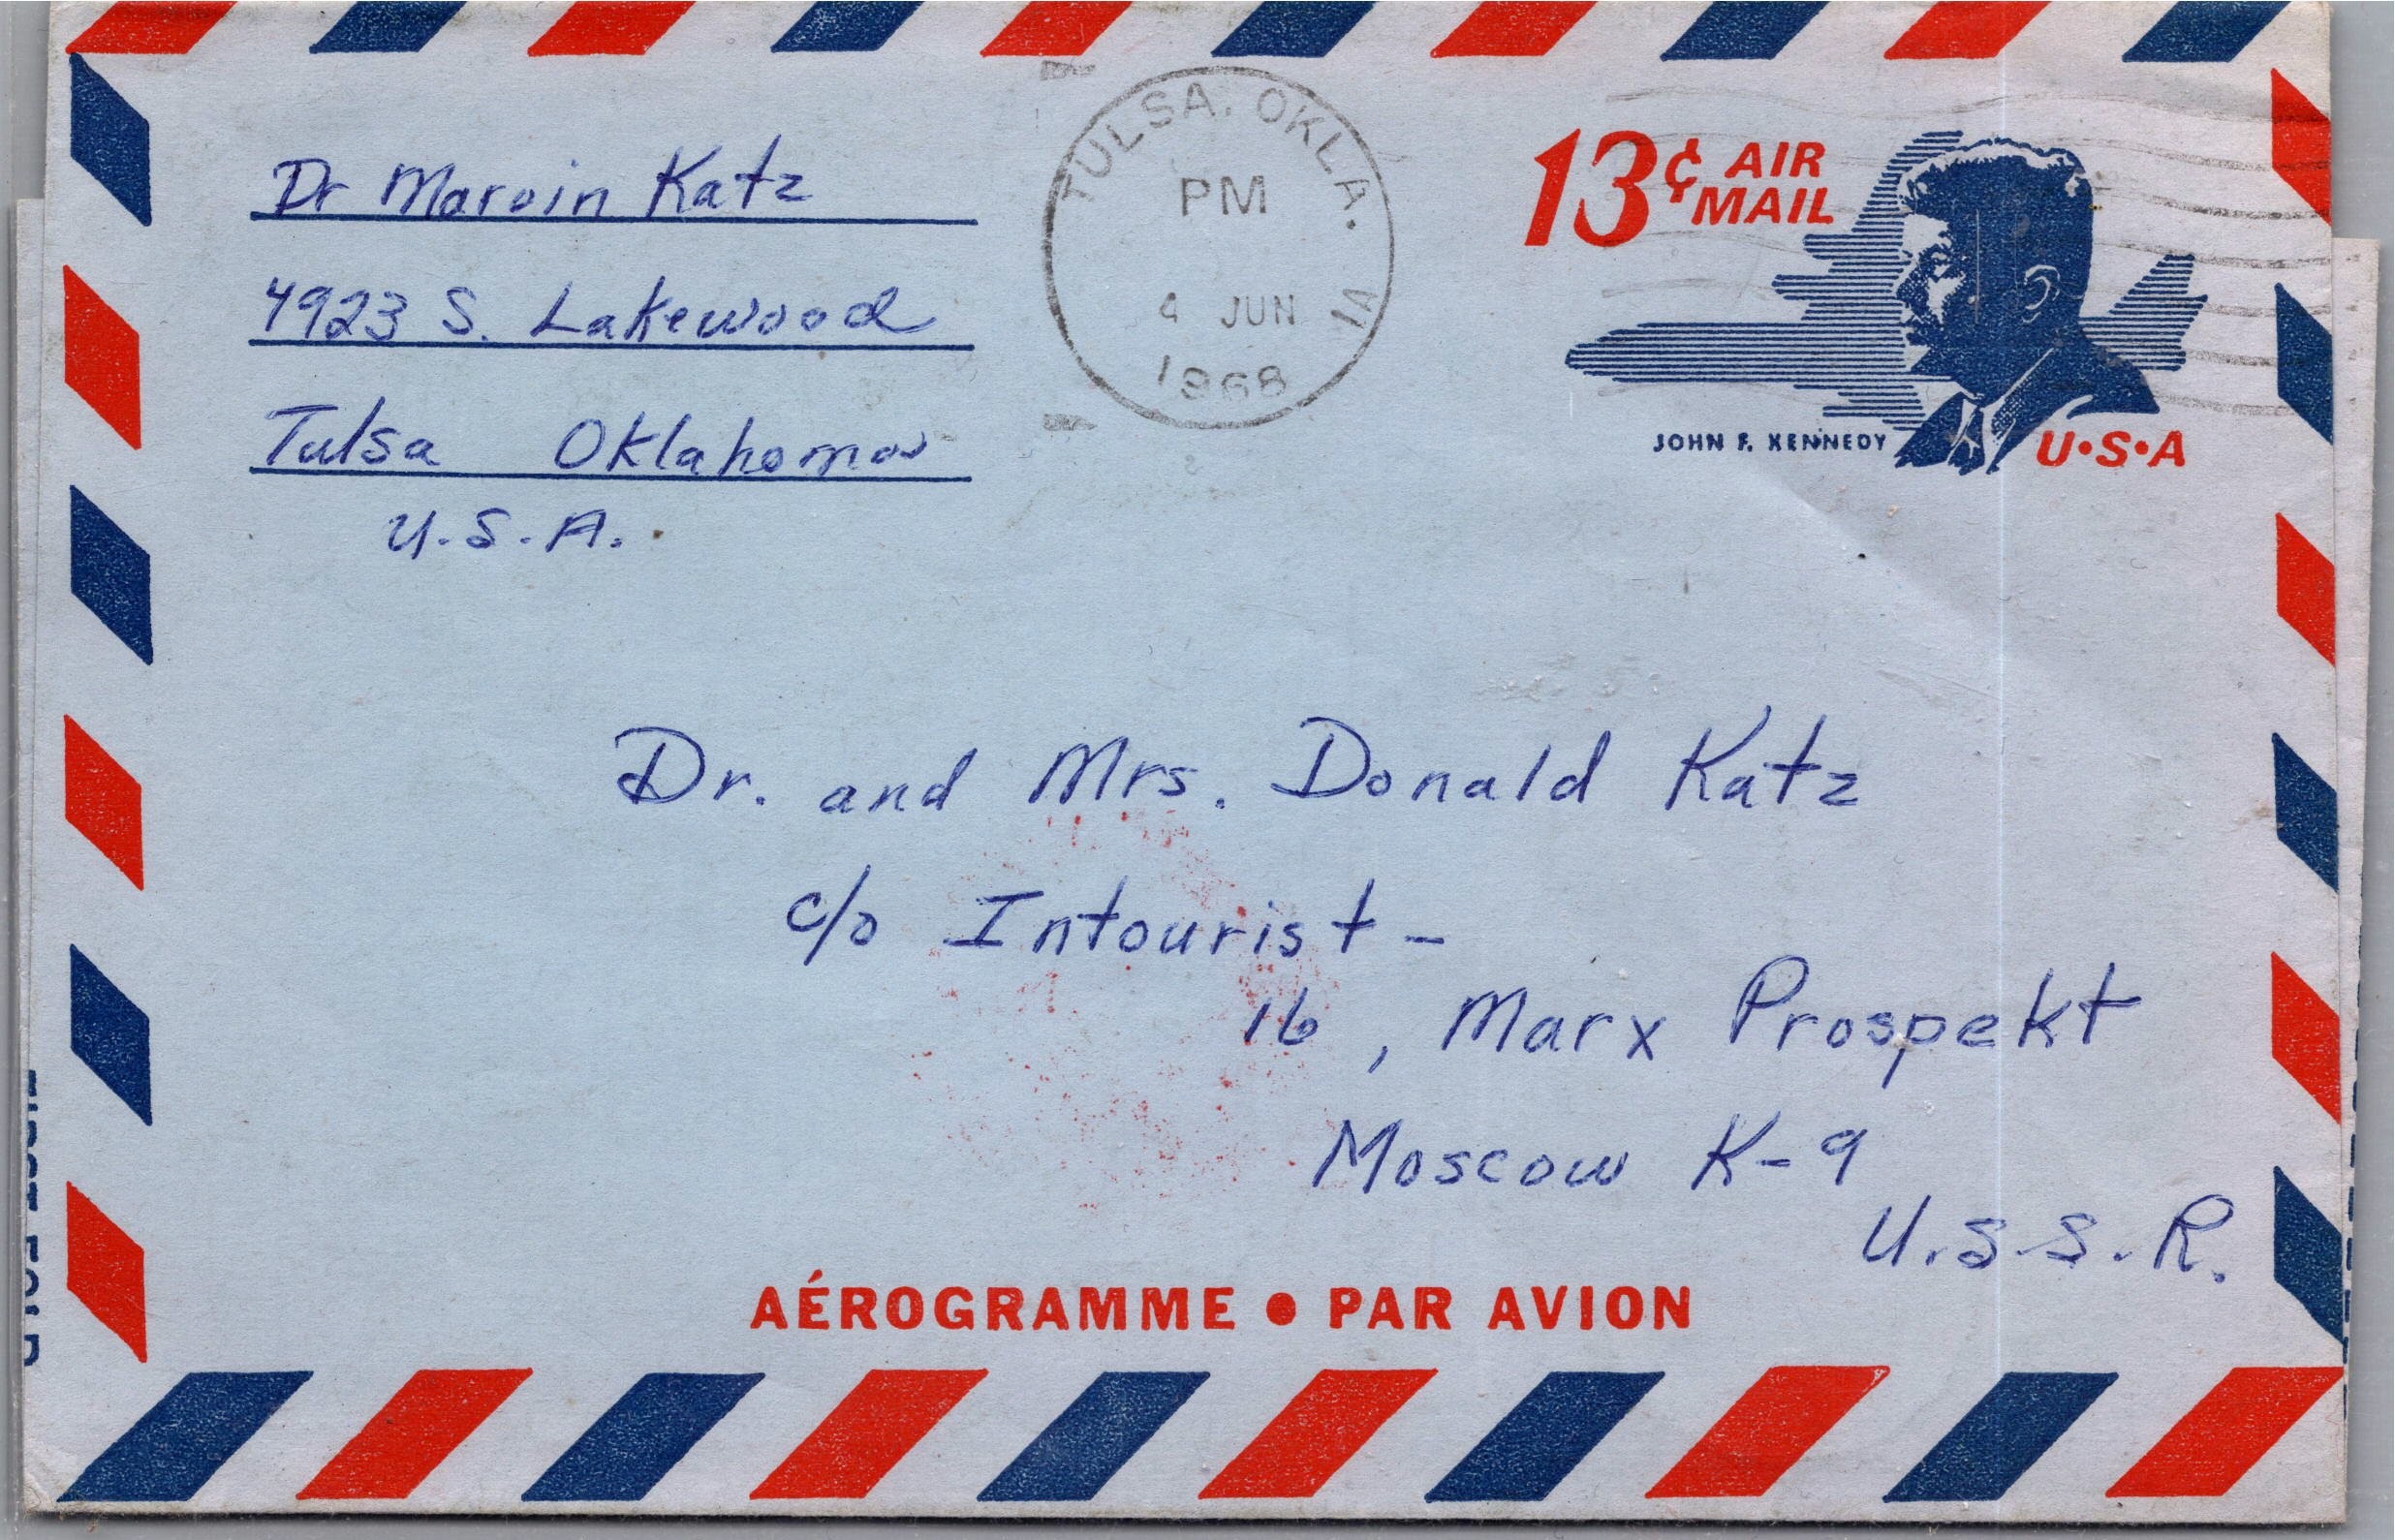 Dr Marvin Katz
4923 S. Lakewood
Tulsa Oklahoma
U.S.A.
TULSA, OKLA.
PM
4 JUN
1968
13¢ AIR MAIL
JOHN F. KENNEDY
U•S•A
Dr. and Mrs. Donald Katz
c/o Intourist -
16, Marx Prospekt
Moscow K-9
U.S.S.R.
AÉROGRAMME • PAR AVION